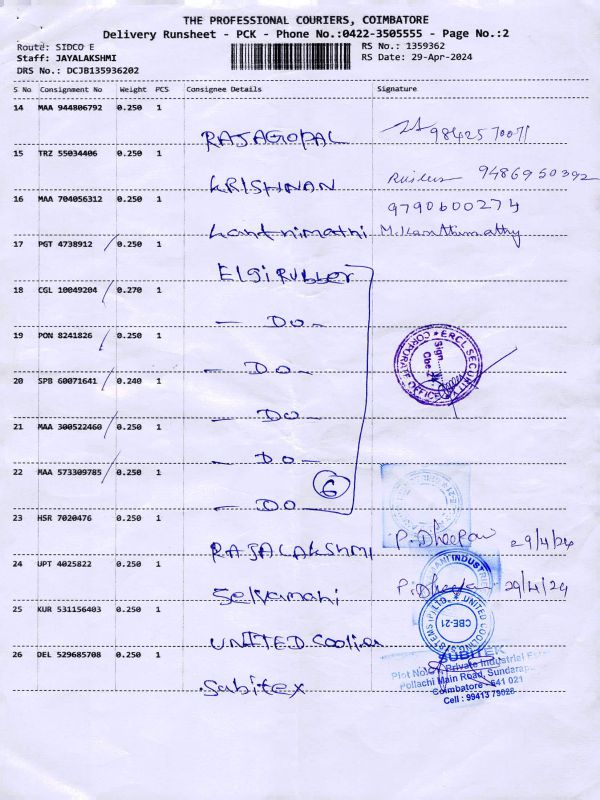 THE PROFESSIONAL COURIERS, COIMBATORE
Delivery Runsheet - PCK - Phone No.:0422-3505555 - Page No.:2
Route: SIDCO E
RS No.: 1359362
Staff: JAYALAKSHMI
RS Date: 29-Apr-2024
DRS No.: DCJB135936202
S No Consignment No Weight PCS Consignee Details Signature
14 MAA 944806792 0.250 1
RAJAGOPAL 9842570071
15 TRZ 55034406 0.250 1
KRISHNAN 9486950392
16 MAA 704056312 0.250 1
9790600274
Kanthimathi M.Kanthimathy
17 PGT 4738912 0.250 1
Elgi Rubber
18 CGL 10049204 0.270 1
- DO -
19 PON 8241826 0.250 1
- DO -
20 SPB 60071641 0.240 1
- DO -
21 MAA 300522460 0.250 1
- DO -
22 MAA 573309785 0.250 1
6
- DO -
23 HSR 7020476 0.250 1
RAJALAKSHMI P. Dheepan 29/4/24
24 UPT 4025822 0.250 1
Selvamani P. Dheepan 29/4/24
25 KUR 531156403 0.250 1
UNITED Cooling
26 DEL 529685708 0.250 1
Sabitex
ERCL SECURITY
CORPORATE OFFICE
Sign
UNITED COOLING SYSTEMS (P) LTD.
CBE-21
SUBITEK
Private Industrial
Pollachi Main Road, Sundarapu
Coimbatore - 641 021
Cell : 99413 79028